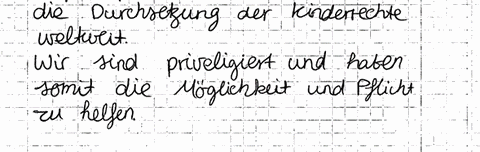 die Durchsetzung der Kinderrechte
weltweit.
Wir sind priveligiert und haben
somit die Möglichkeit und Pflicht
zu helfen